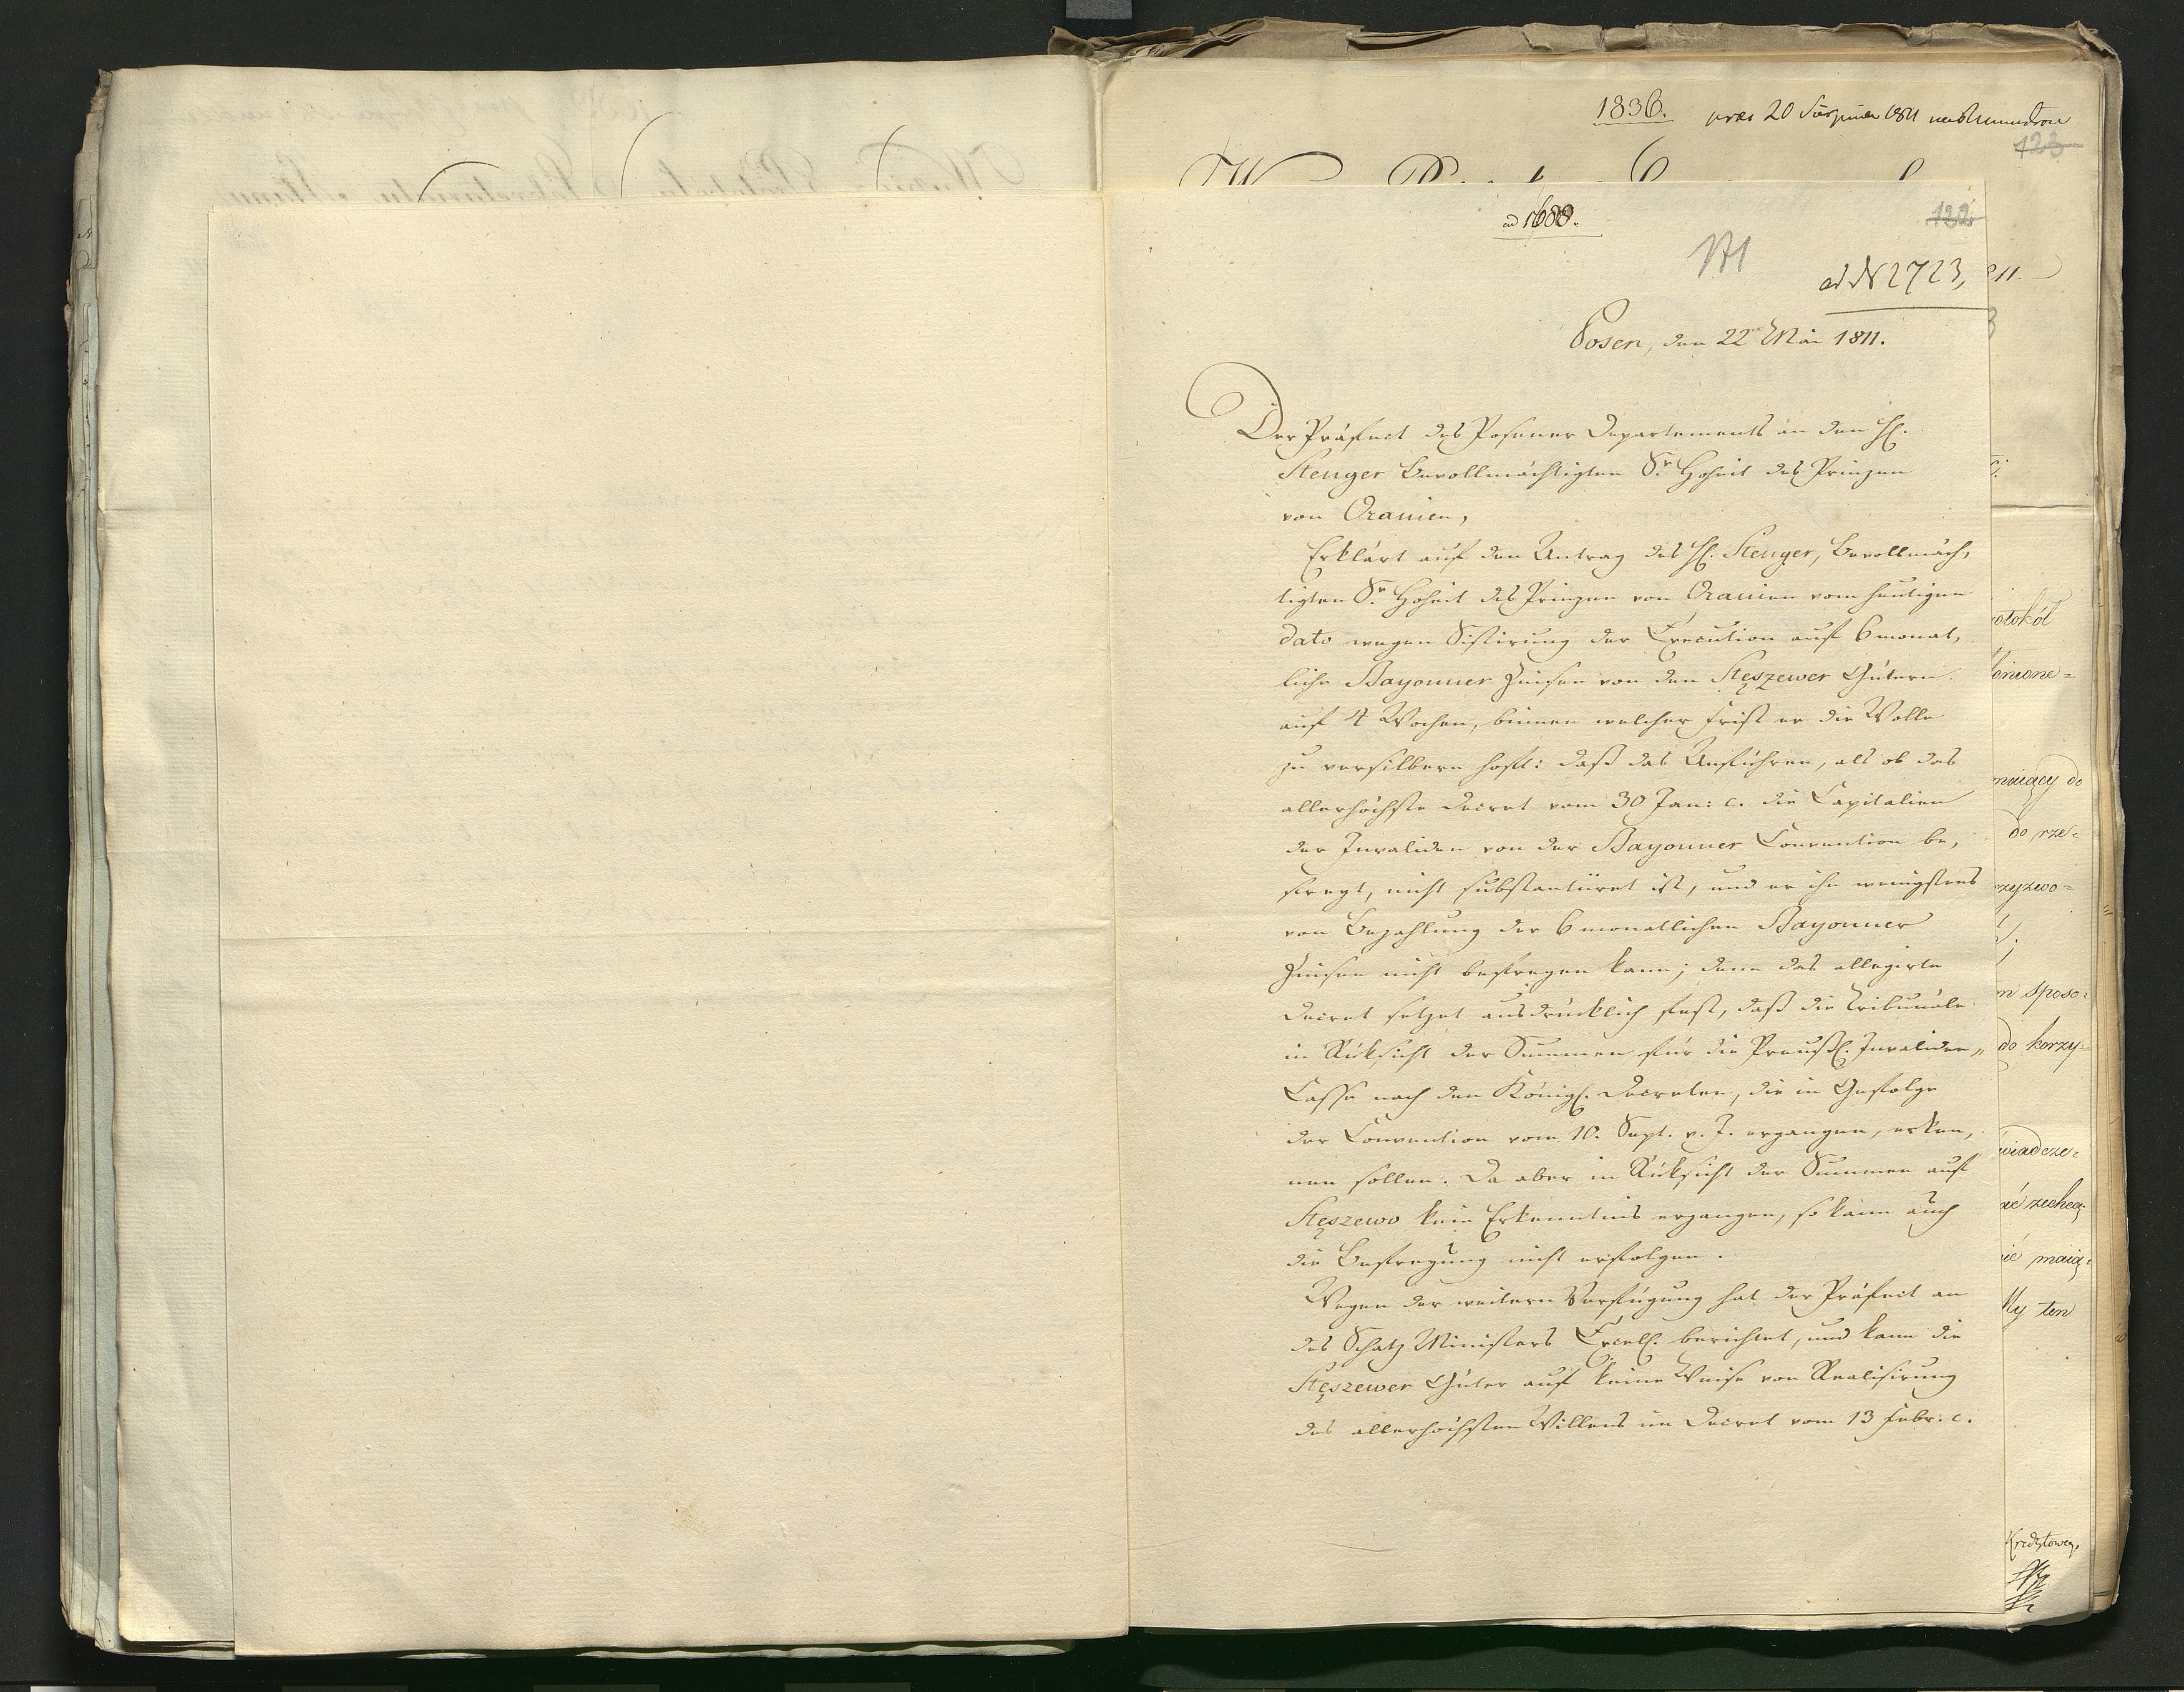 1836.
123
ad 1688.
122
ad N 2723,
Posen, den 22ten Mai 1811.
Der Präfect des Posener Departements an den H.
Stenger Bevollmächtigten Sr. Hoheit des Prinzen
von Oranien,
Erklärt auf den Antrag des H. Stenger, Bevollmäch,
tigten Sr. Hoheit des Prinzen von Oranien vom heutigen
dato wegen Sistirung der Execution auf 6 monat,
liche Bayonner Zinsen von den Stęszewer Gütern
auf 4 Wochen, binnen welcher Frist er die Wolle
zu versilbern hoft: daß das Anführen, als ob das
allerhöchste Decret vom 30 Jan: c. die Capitalien
der Invaliden von der Bayonner Convention be,
freyt, nicht substantiiret ist, und er ihn wenigstens
von Bezahlung der 6 monatlichen Bayonner
Zinsen nicht befreyen kann; denn das allegirte
Decret setzet ausdrücklich fest, daß die Tribunäle
in Rüksicht der Summen für die Preußl. Invaliden„
Casse nach den Königl. Decreten, die in Gefolge
der Convention vom 10. Sept. v. J. ergangen, erken,
nen sollen. Da aber in Rüksicht der Summen auf
Stęszewo kein Erkenntnis ergangen, so kann auch
die Befreyung nicht erfolgen.
Wegen der weitern Verfügung hat der Präfect an
des Schatz Ministers Excell. berichtet, und kann die
Stęszewer Güter auf keine Weise von Realisirung
des allerhöchsten Willens im Decret vom 13 Febr. c.
otokół
maiący do
do rze-
rzyzwo-
m sposo-
do korzy-
wiadcze-
ać zechcą
ić maią-
lly ten